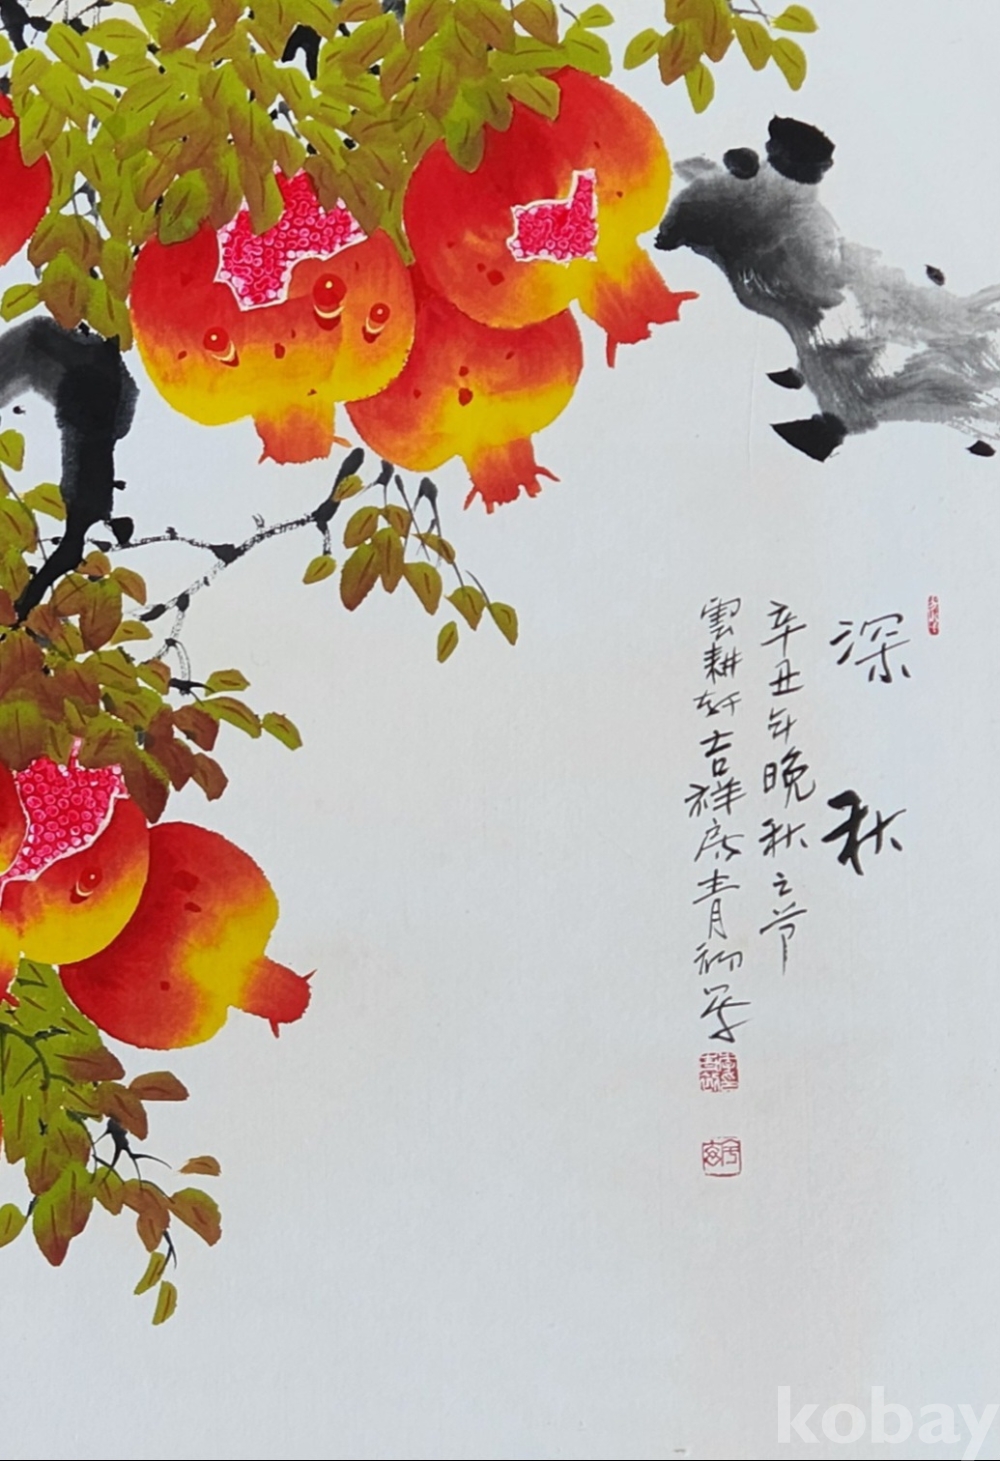 深秋
辛丑年晚秋之节
雲耕轩吉祥居青初写
kobay